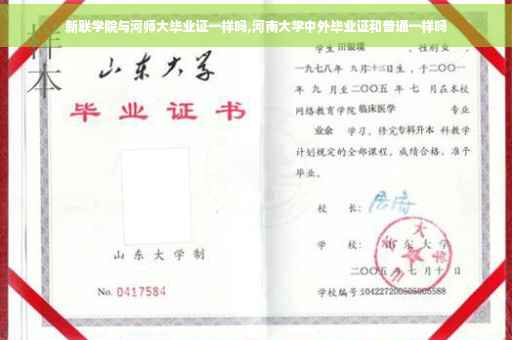 新联学院与河师大毕业证一样吗,河南大学中外毕业证和普通一样吗
样本
山东大学
毕业证书
山东大学制
No. 0417584
学生 田骏璞 ，性别 女 ，
一九七八年 九月十三日生，于二〇〇一
年 九 月至二〇〇五 年 七 月在本校
网络教育学院 临床医学 专业
业余 学习，修完专科升本 科教学
计划规定的全部课程，成绩合格，准予
毕业。
校 长：
学 校： 山东大学
二〇〇五年七月十日
学校编号:104227200505005588